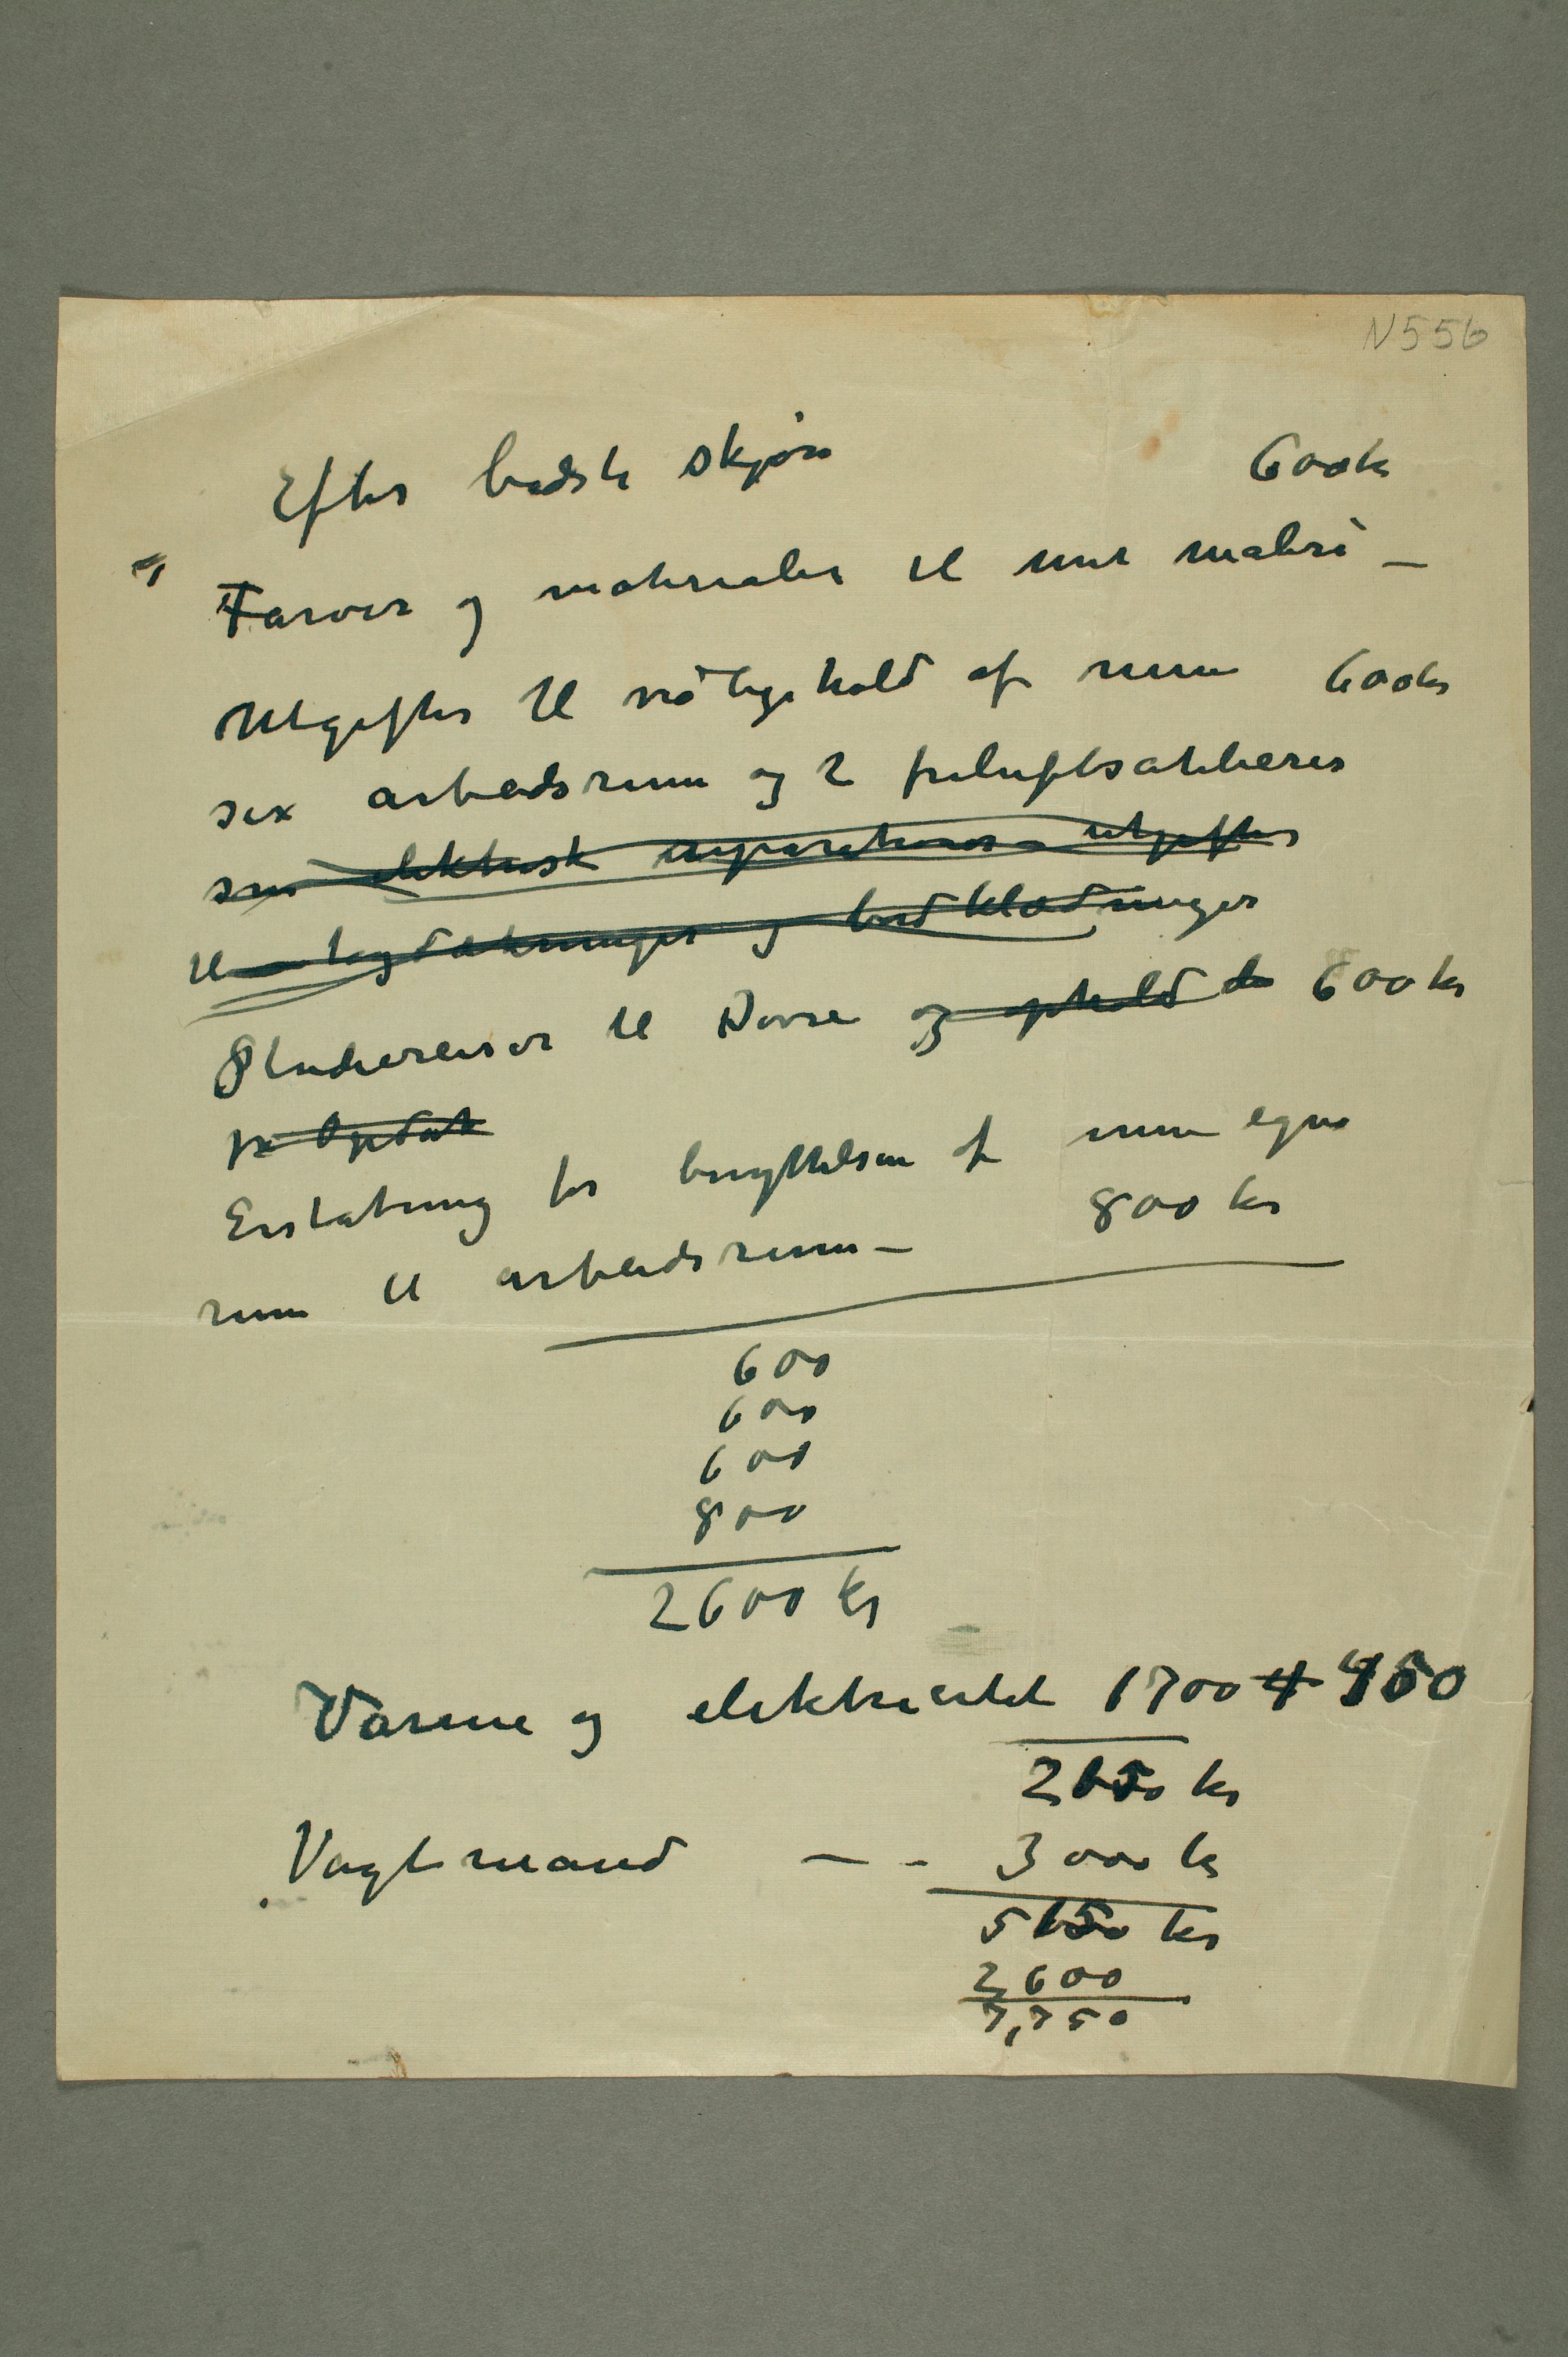 N 556
Efter bedste skjøn 600 kr
Farver og materialer til mit maleri –
Utgifter til vedligehold af mine 600 kr
sex arbeidsrum og 2 friluftsatelierer
som elektrisk reparationer – utgifter
til tagdækninger og bordklædninger
Studiereiser til Dovre og ophold der 600 kr
på Opdal
Erstatning for benyttelsen af mine egne
rum til arbeidsrum – 800 kr
600
600
600
800
2600 kr
Varme og elektricitet 1700 + 450
2150 kr
Vagtmand – – 3000 kr
5150 kr
2600
7,750